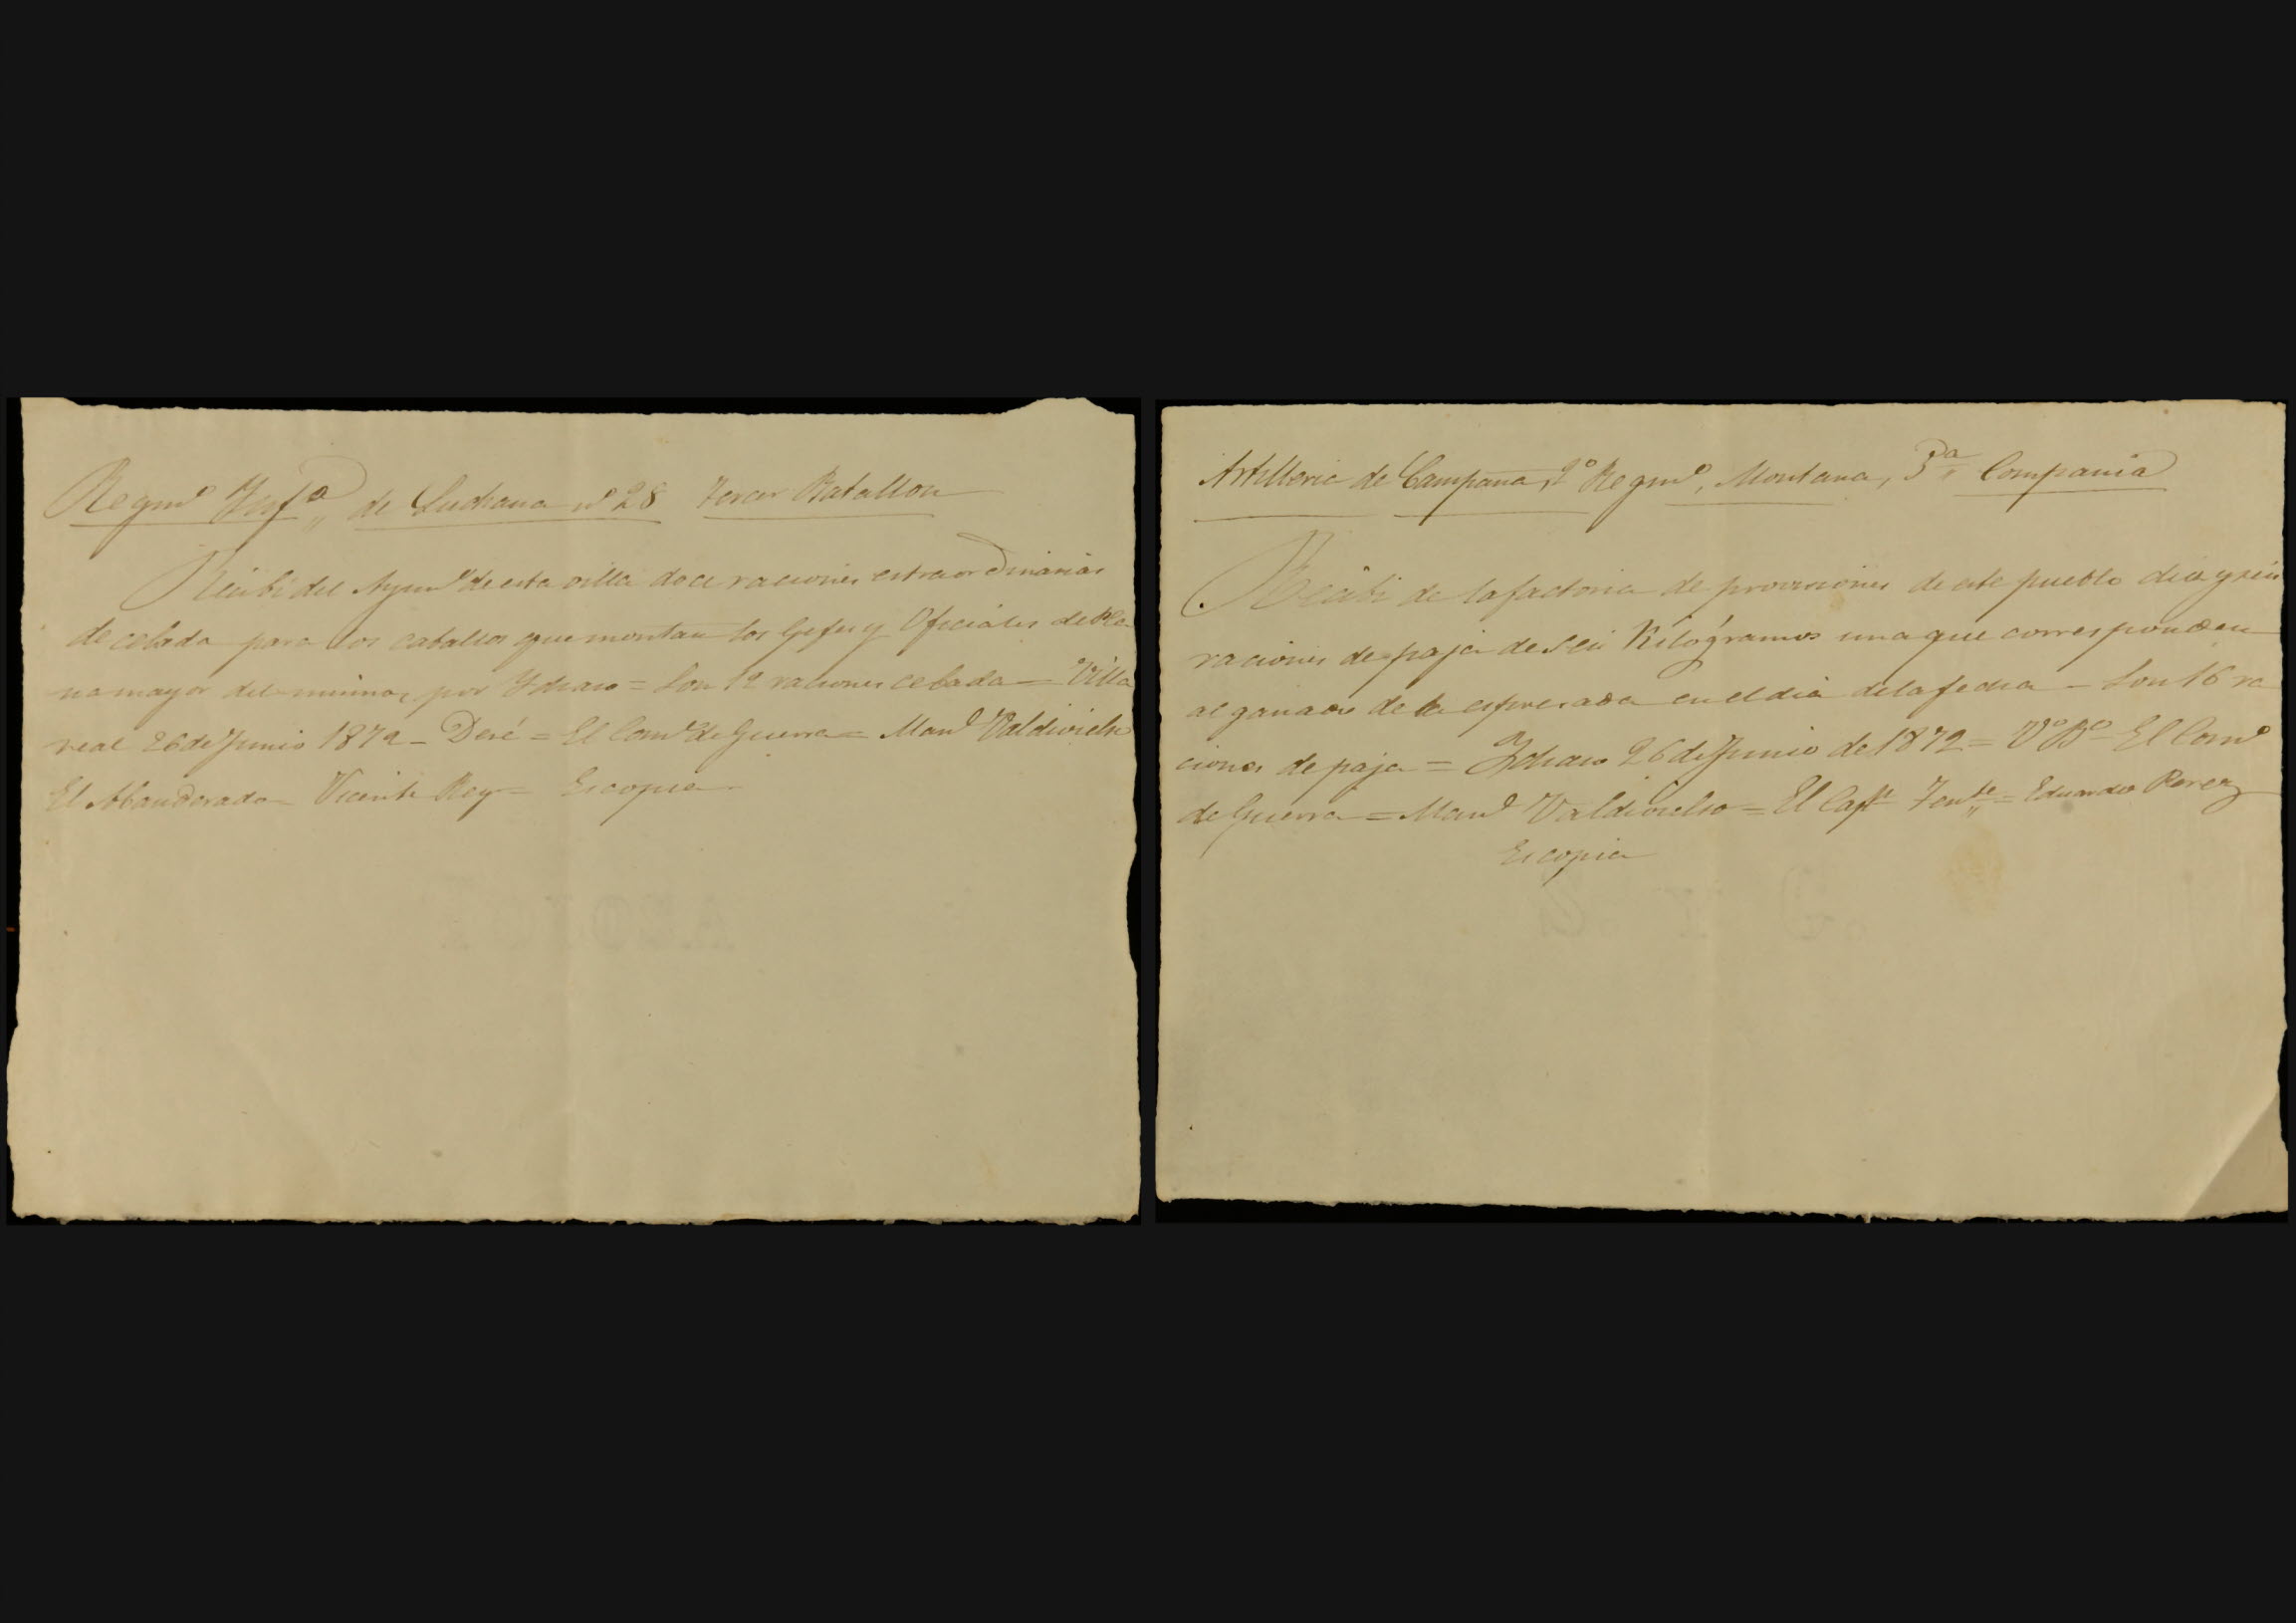 Regim.to Ynf.a de Luchana nº 28 Tercer Batallon
Recibi del Ayun.to de esta villa doce raciones estraordinarias
de cebada para los caballos que montan los Gefes y Oficiales de Pla
na mayor del mismo, por Ydiazo = Son 12 raciones cebada = Villa
real 26 de Junio 1872 - Dese = El Com.o de Guerra = Man.l Valdivielso
El Abanderado = Vicente Rey = Es copia
Artilleria de Campaña, 2º Regim.to, Montana, 3.a Compania
Recibi de la factoria de provisiones de este pueblo diez y seis
raciones de paja de seis Kilógramos una que corresponden
al ganado de la espresada en el dia de la fecha - Son 16 ra
ciones de paja = Ydiazo 26 de Junio de 1872 = Vº Bº El Com.o
de Guerra = Man.l Valdivielso = El Cap.n Ten.te = Eduardo Perez
Es copia